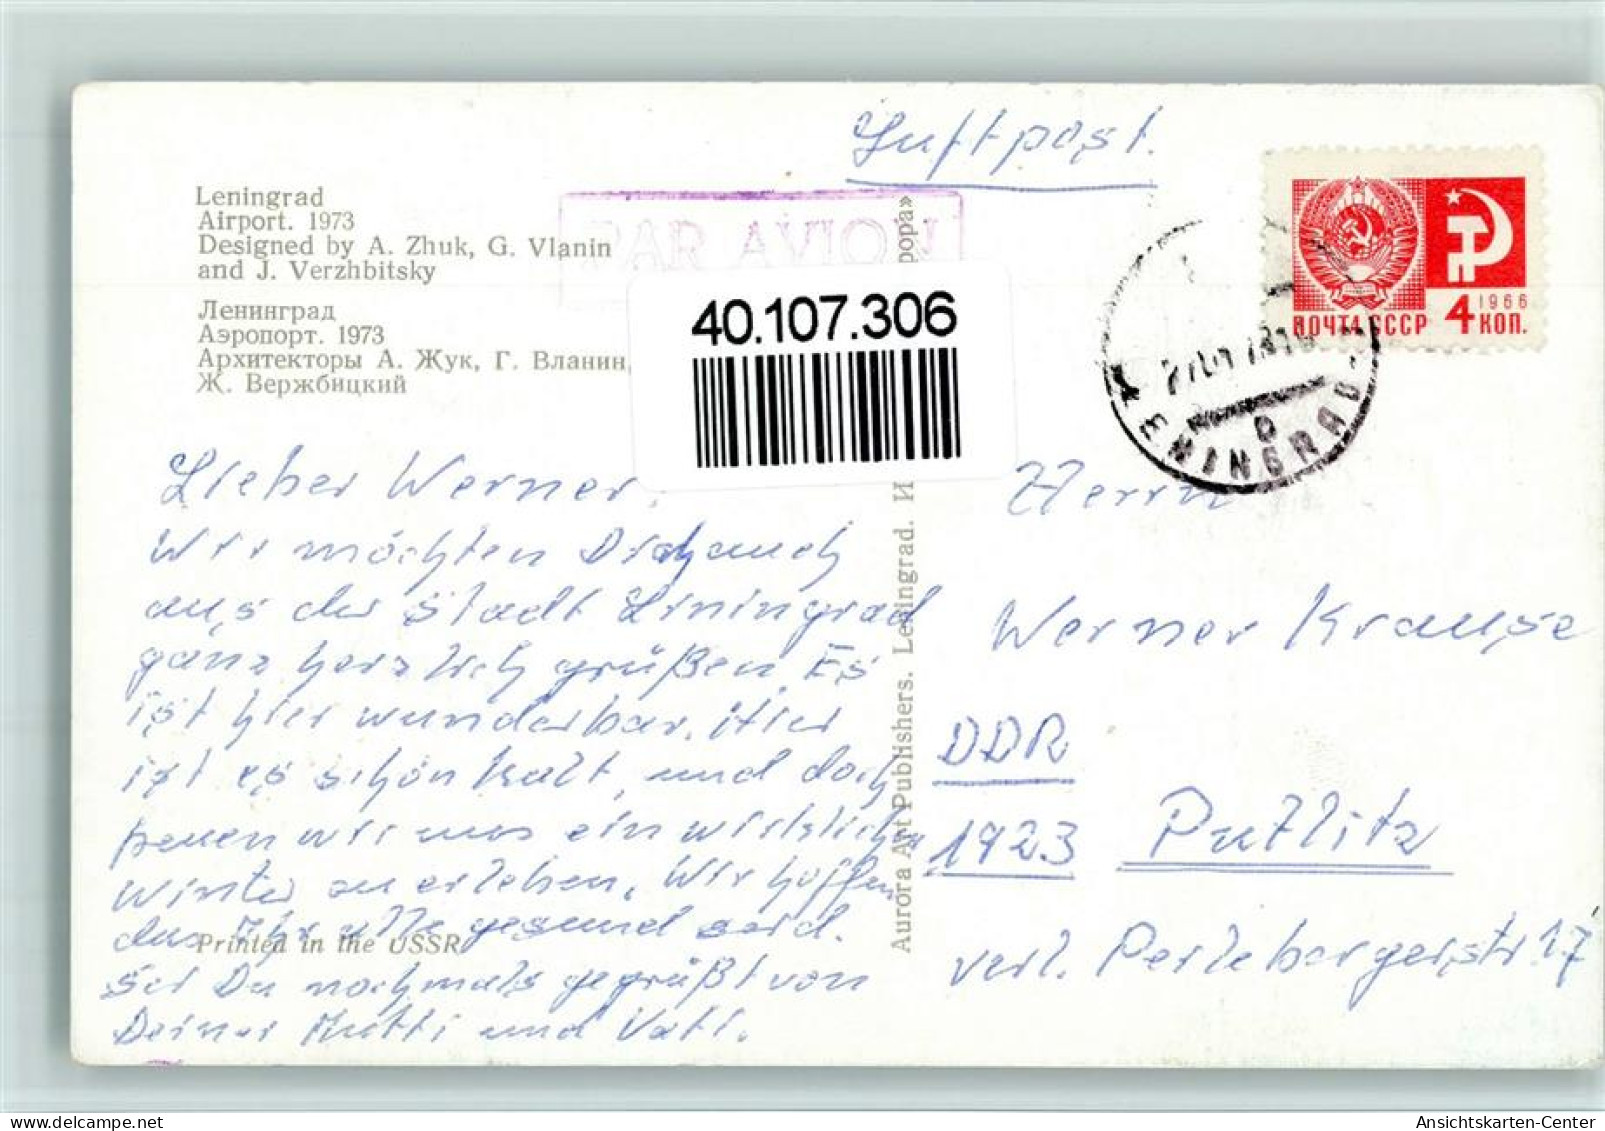 Luftpost.
Leningrad
Airport. 1973
Designed by A. Zhuk, G. Vlanin
and J. Verzhbitsky
Ленинград
Аэропорт. 1973
Архитекторы А. Жук, Г. Вланин,
Ж. Вержбицкий
PAR AVION
40.107.306
ПОЧТА СССР 4 КОП.
1966
LENINGRAD
Lieber Werner,
Wir möchten Dich auch
aus der Stadt Leningrad
ganz herzlich grüßen. Es
ist hier wunderbar. Hier
ist es schön kalt, und doch
freuen wir uns ein wirkliche
Winter zu erleben. Wir hoffen
das Ihr alle gesund seid.
Sei Du nochmals gegrüßt von
Deiner Mutti und Vati.
Printed in the USSR
Aurora Art Publishers. Leningrad. И
рора»
Herrn
Werner Krause
DDR
1923 Putlitz
verl. Perlebergerstr. 17
Ansichtskarten-Center